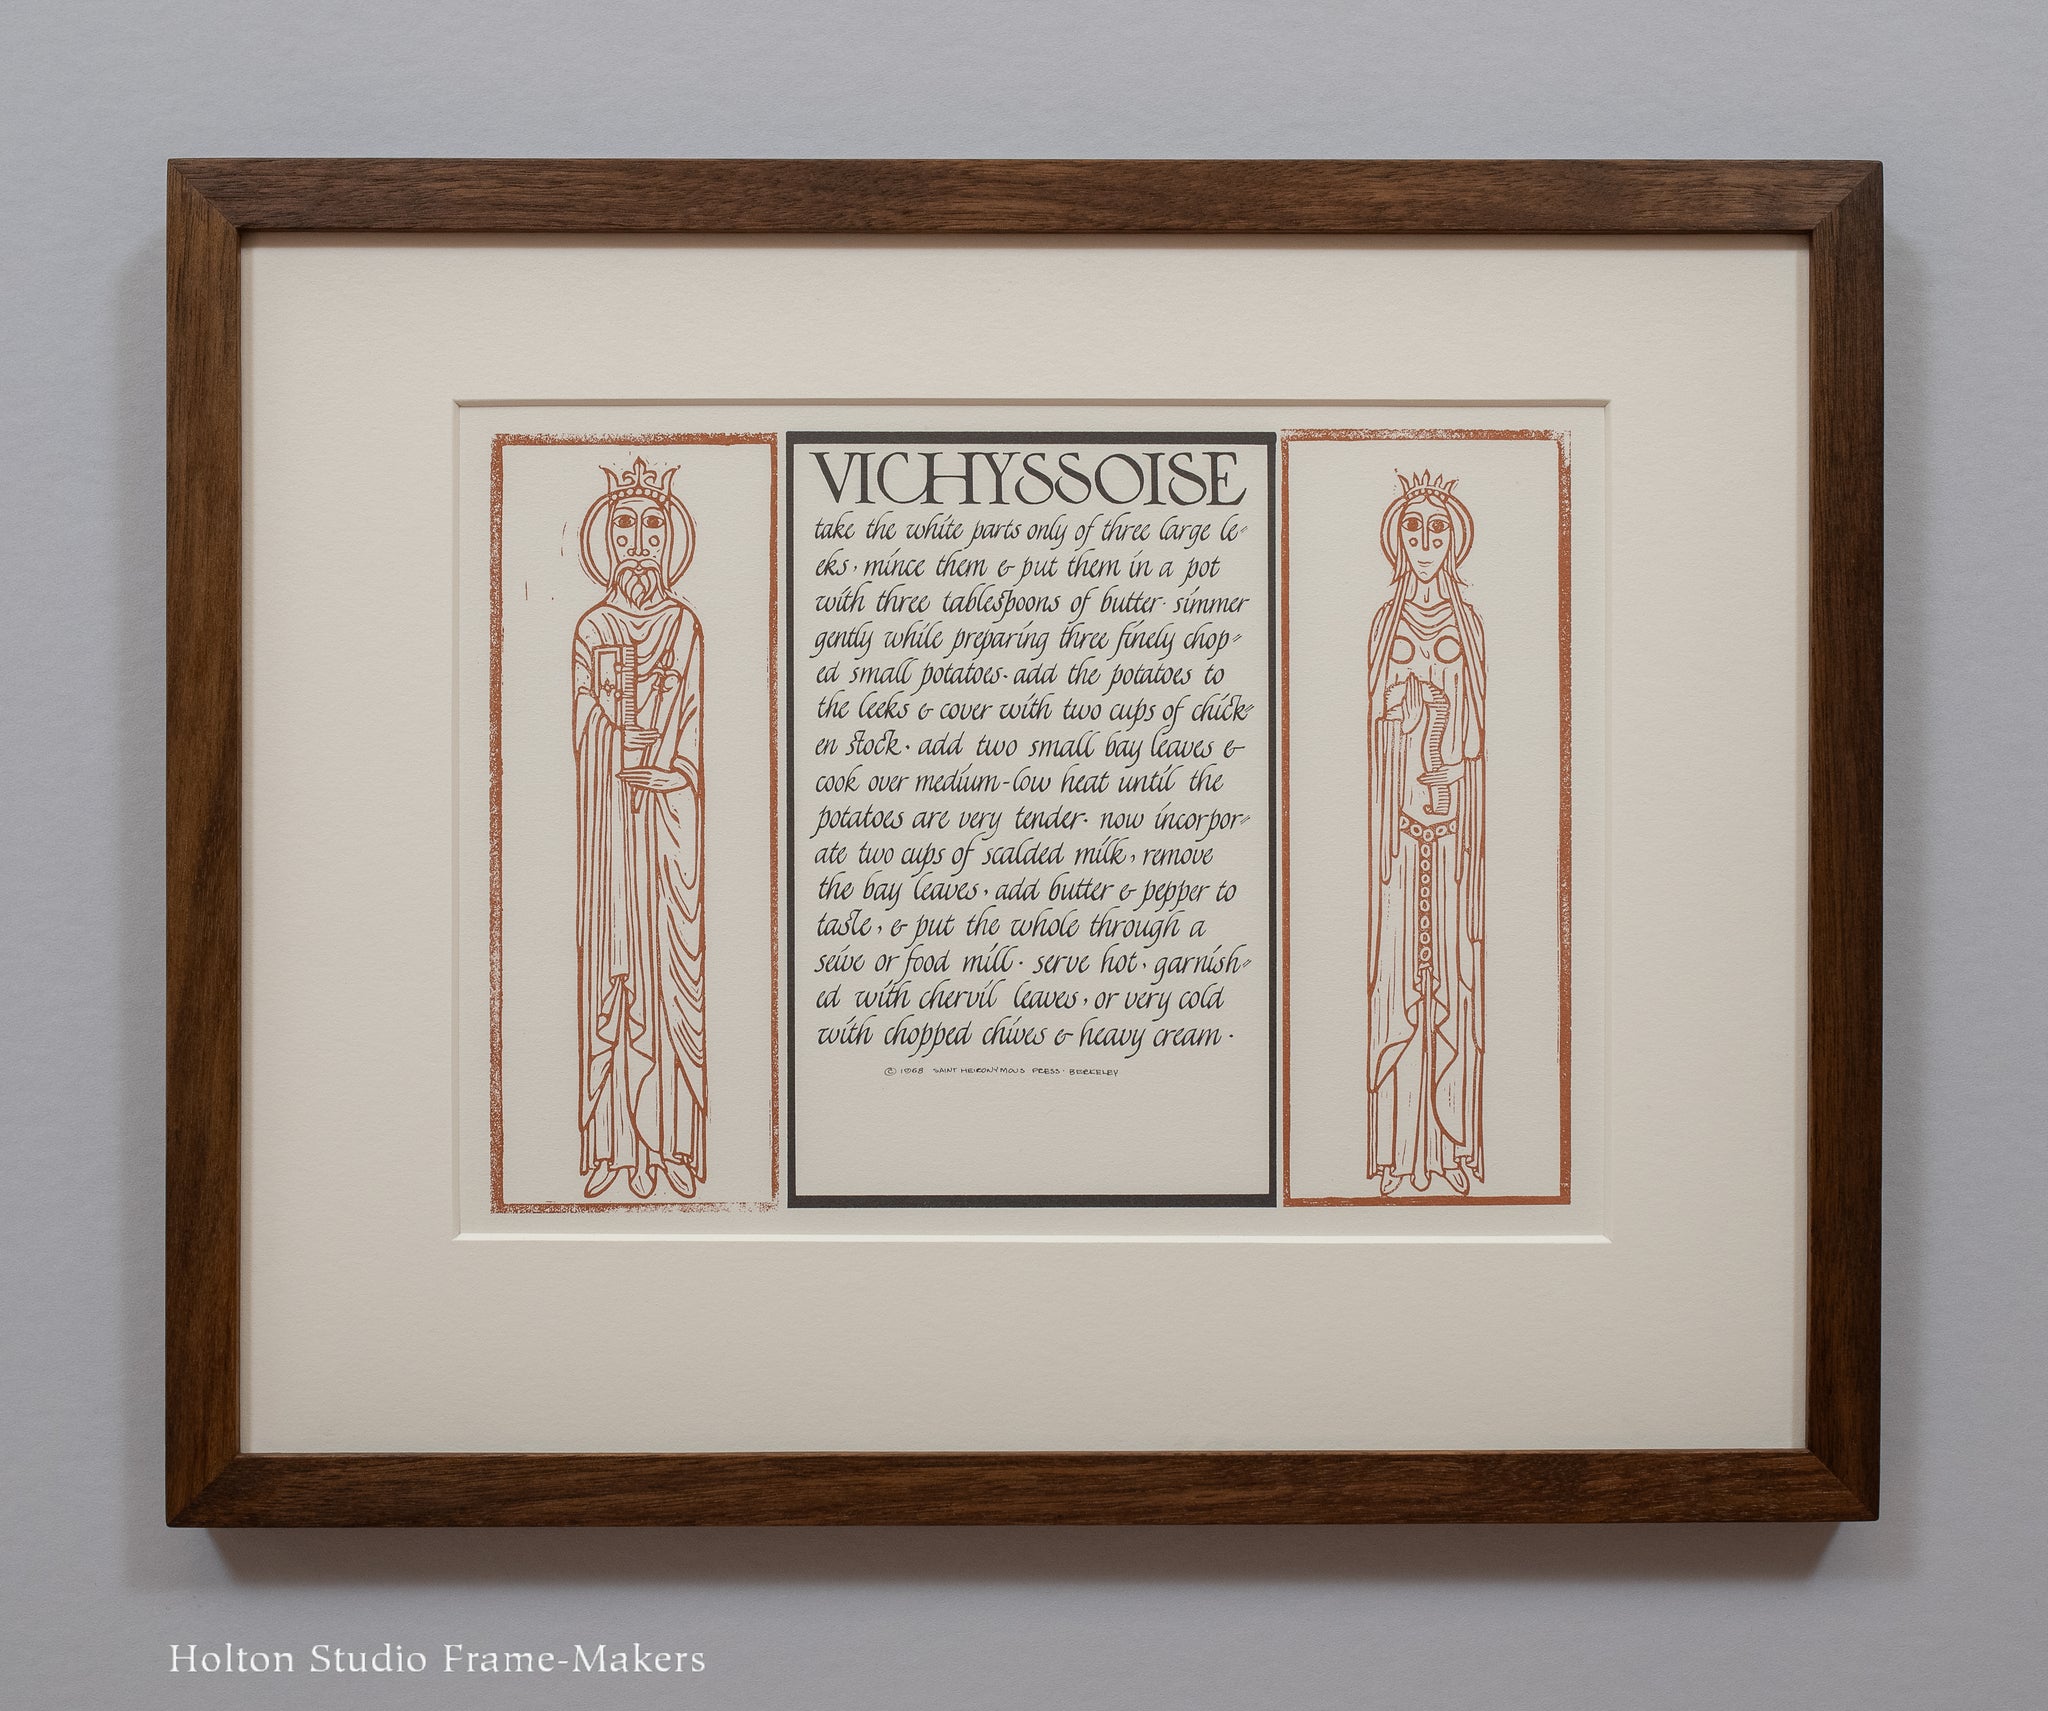 VICHYSSOISE
take the white parts only of three large le=
eks, mince them & put them in a pot
with three tablespoons of butter. simmer
gently while preparing three finely chop=
ed small potatoes. add the potatoes to
the leeks & cover with two cups of chick=
en stock. add two small bay leaves &
cook over medium-low heat until the
potatoes are very tender. now incorpor=
ate two cups of scalded milk, remove
the bay leaves, add butter & pepper to
taste, & put the whole through a
seive or food mill. serve hot, garnish=
ed with chervil leaves, or very cold
with chopped chives & heavy cream.
© 1968 SAINT HEIRONYMOUS PRESS. BERKELEY
Holton Studio Frame-Makers